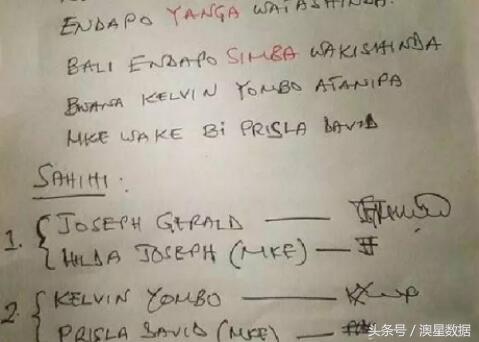 ENDAPO YANGA WATASHINDA.
BALI ENDAPO SIMBA WAKISHINDA
BWANA KELVIN YOMBO ATANIPA
MKE WAKE BI PRISLA DAVID
SAHIHI:
1. { JOSEPH GERALD —
HILDA JOSEPH (MKE) —
2. { KELVIN YOMBO —
PRISLA DAVID (MKE) —
头条号 / 澳星数据